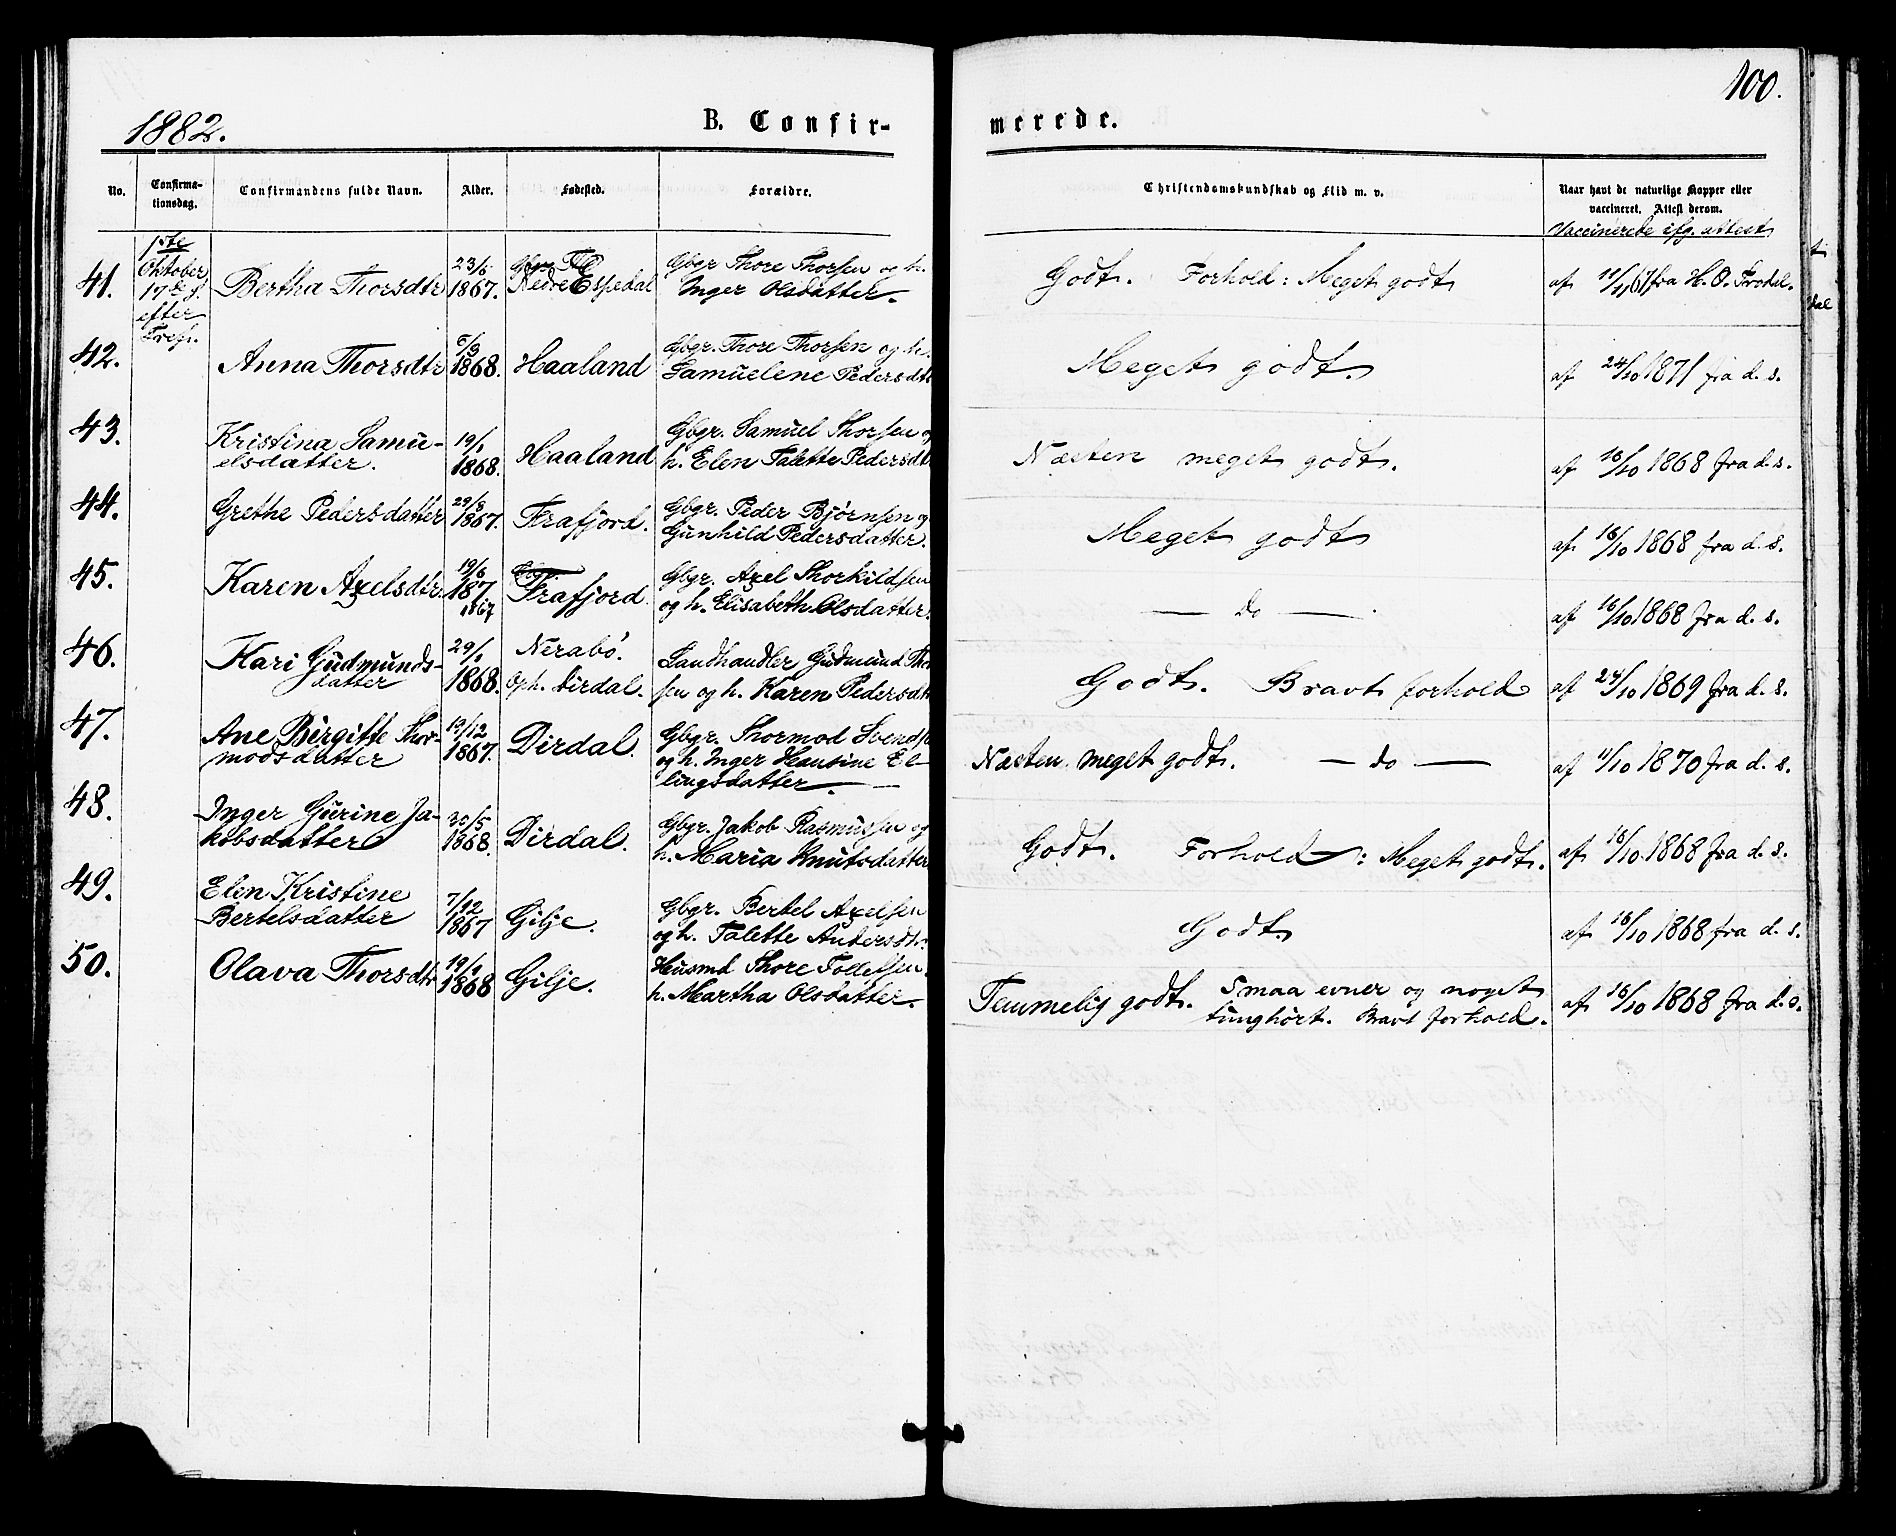 100.
1882. B. Confir- merede.
No. Confirma-tionsdag. Confirmandens fulde Navn. Alder. Fødested. Forældre. Christendomskundskab og Flid m. v. Naar havt de naturlige Kopper eller vaccineret. Attest derom.
Vaccinerede ifg. attest
1ste Oktober 17de S. efter Trefr.
41. Bertha Thorsdtr 23/6 1867. Nedre Espedal Gbgr Thore Thorsen og h. Inger Olsdatter. Godt. Forhold: Meget godt af 11/11 67 fra H. O. Frodal.
42. Anna Thorsdtr 1868. Haaland Gbgr. Thore Thorsen og h. Samuelene Pedersdtr Meget godt. af 24/10 1871 fra d. s.
43. Kristina Samu-
elsdatter. 19/1 1868. Haaland Gbgr. Samuel Thorsen og
h. Elen Talette Pedersdt Næsten meget godt. af 16/10 1868 fra d. s.
44. Grethe Pedersdatter 29/8 1867. Frafjord. Gbgr. Peder Bjørnsen og
Gunhild Pedersdatter. Meget godt af 16/10 1868 fra d. s.
45. Karen Axelsdtr. 19/6 187 1867 Frafjord. Gbgr. Axel Thorkildsen
og h. Elisabeth Olsdatter. — do — af 16/10 1868 fra d. s.
46. Kari Gudmunds-
datter 29/1 1868. Nerabø. Oph. Dirdal. Landhandler Gudmund Thor
sen og h. Karen Pedersdtr Godt. Bravt forhold af 24/10 1869 fra d. s.
47. Ane Birgitte Thor-
modsdatter 19/12 1867. Dirdal. Gbgr. Thormod Svends
og h. Inger Hansine El-
lingsdatter. — Næsten meget godt. — do — af 11/10 1870 fra d. s.
48. Inger Gurine Ja-
kobsdatter 30/5 1868. Dirdal. Gbgr. Jakob Rasmussen og
h. Maria Knutsdatter Godt. Forhold: Meget godt. af 16/10 1868 fra d. s.
49. Elen Kristine
Bertelsdatter 7/12 1867 Gilje. Gbgr. Bertel Axelsen
og h. Talette Andersdtr. Godt. af 16/10 1868 fra d. s.
50. Olava Thorsdtr 19/1 1868 Gilje. Husmd Thore Tollefsen.
h. Martha Olsdatter. Temmelig godt. Smaa evner og noget
tunghørt. Bravt forhold. af 16/10 1868 fra d. s.